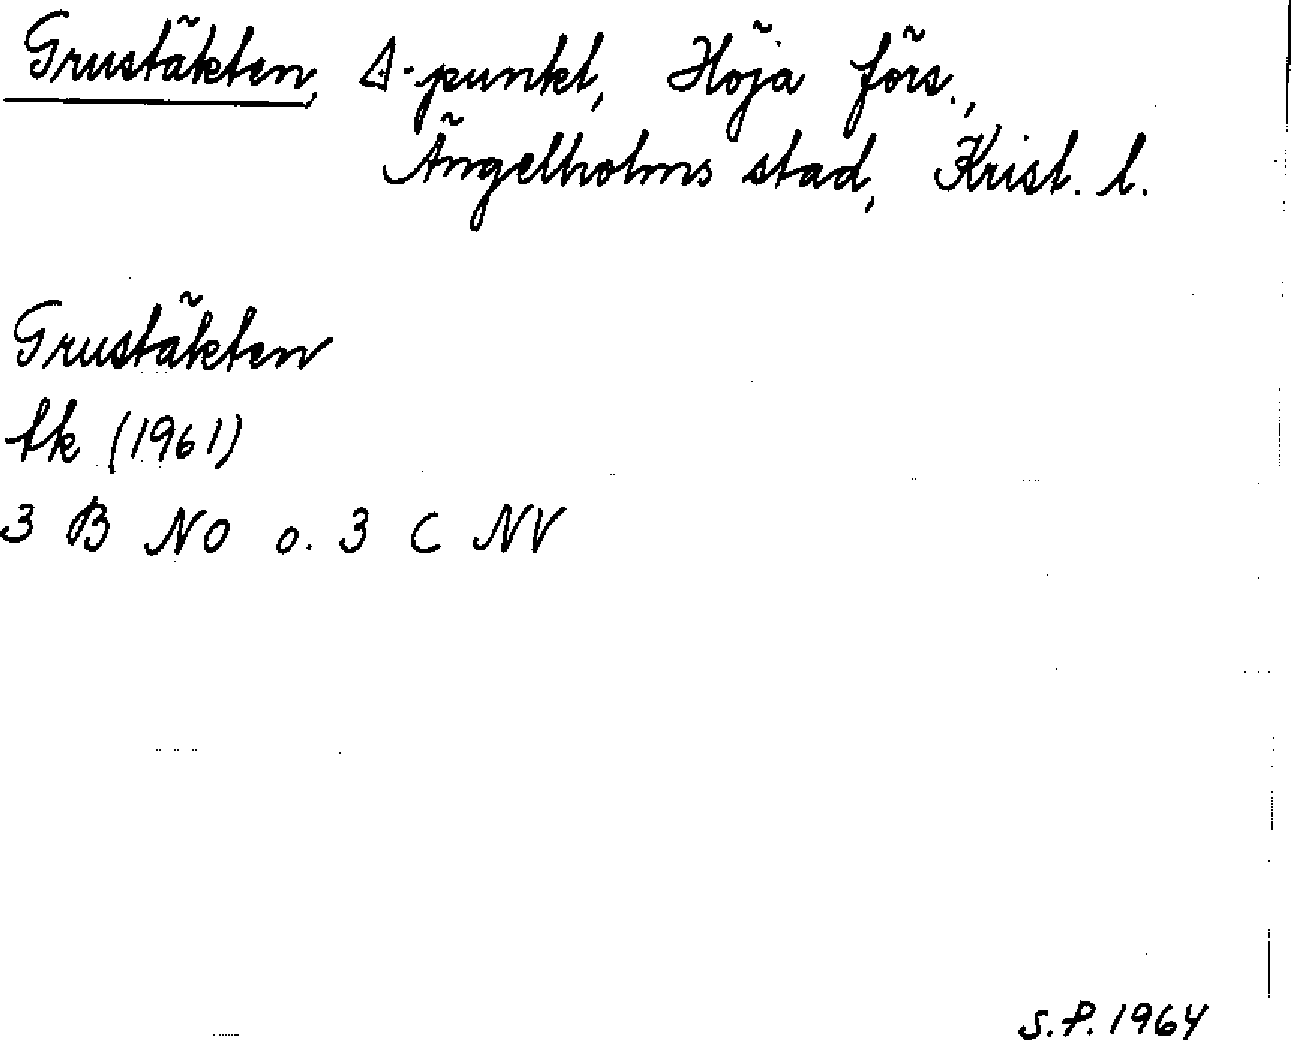 Grustäkten, Δ-punkt, Höja förs.,
Ängelholms stad, Krist. l.
Grustäkten
tk (1961)
3 B NO o. 3 C NV
S.P. 1964